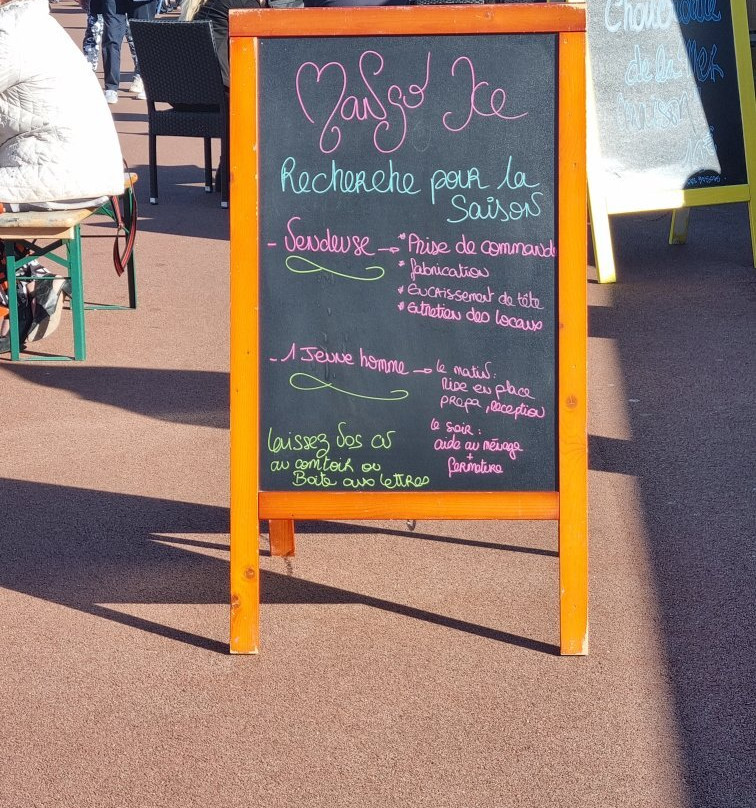 Mango Ice
Recherche pour la
Saison
- Vendeuse → * Prise de command
* fabrication
* Encaissement de tête
* Entretien des locaux
- 1 Jeune homme → le matin :
Mise en place
prépa, réception
le soir :
aide au ménage
+
fermeture
Laissez Vos CV
au comtoir ou
Boite aux lettres
Chou
de la Mer
maison